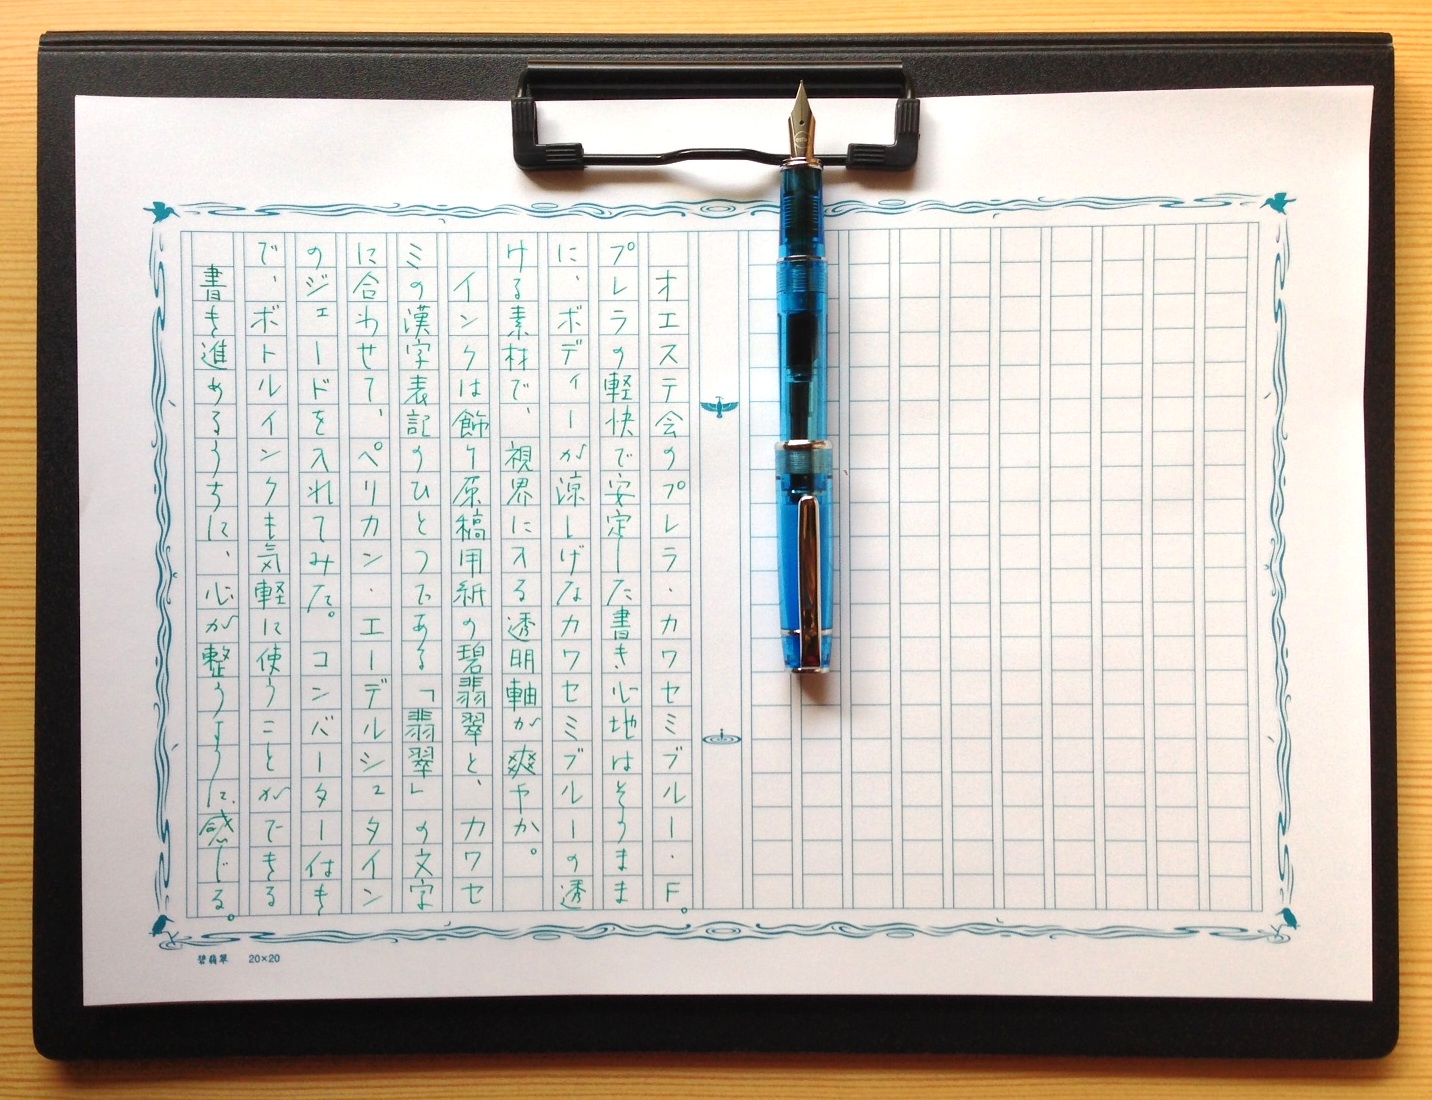 オエステ会のプレラ・カワセミブルー・F。
プレラの軽快で安定した書き心地はそのまま
に、ボディーが涼しげなカワセミブルーの透
ける素材で、視界に入る透明軸が爽やか。
インクは飾り原稿用紙の碧翡翠と、カワセ
ミの漢字表記のひとつである「翡翠」の文字
に合わせて、ペリカン・エーデルシュタイン
のジェードを入れてみた。コンバーター付き
で、ボトルインクも気軽に使うことができる
書き進めるうちに、心が整うように感じる。
碧翡翠 20×20